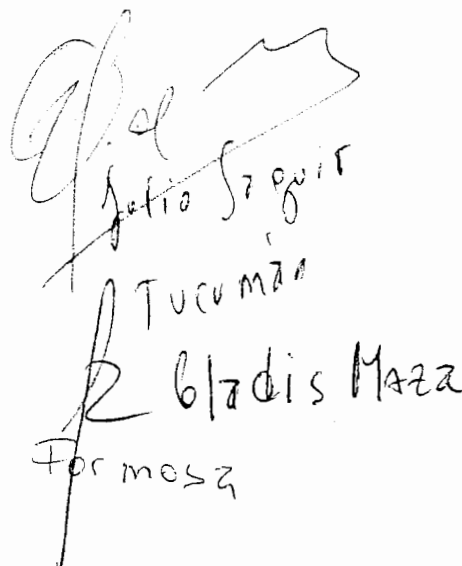 Julio Saguir
Tucumán
Gladis Maza
Formosa